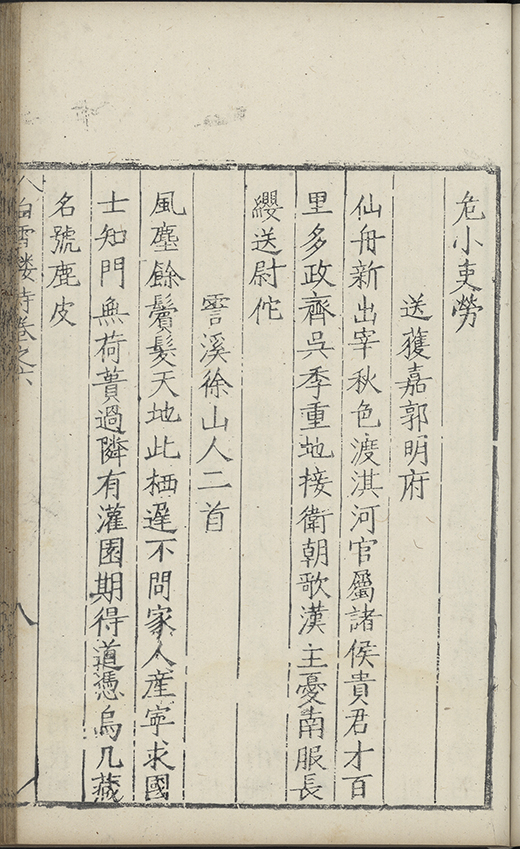 危小吏勞
送獲嘉郭明府
仙舟新出宰秋色渡淇河官屬諸侯貴君才百
里多政齊吳季重地接衛朝歌漢主憂南服長
纓送尉佗
霅溪徐山人二首
風塵餘鬢髮天地此栖遲不問家人產寧求國
士知門無荷蕢過隣有灌園期得道憑烏几藏
名號鹿皮
白雪樓詩卷之六
八